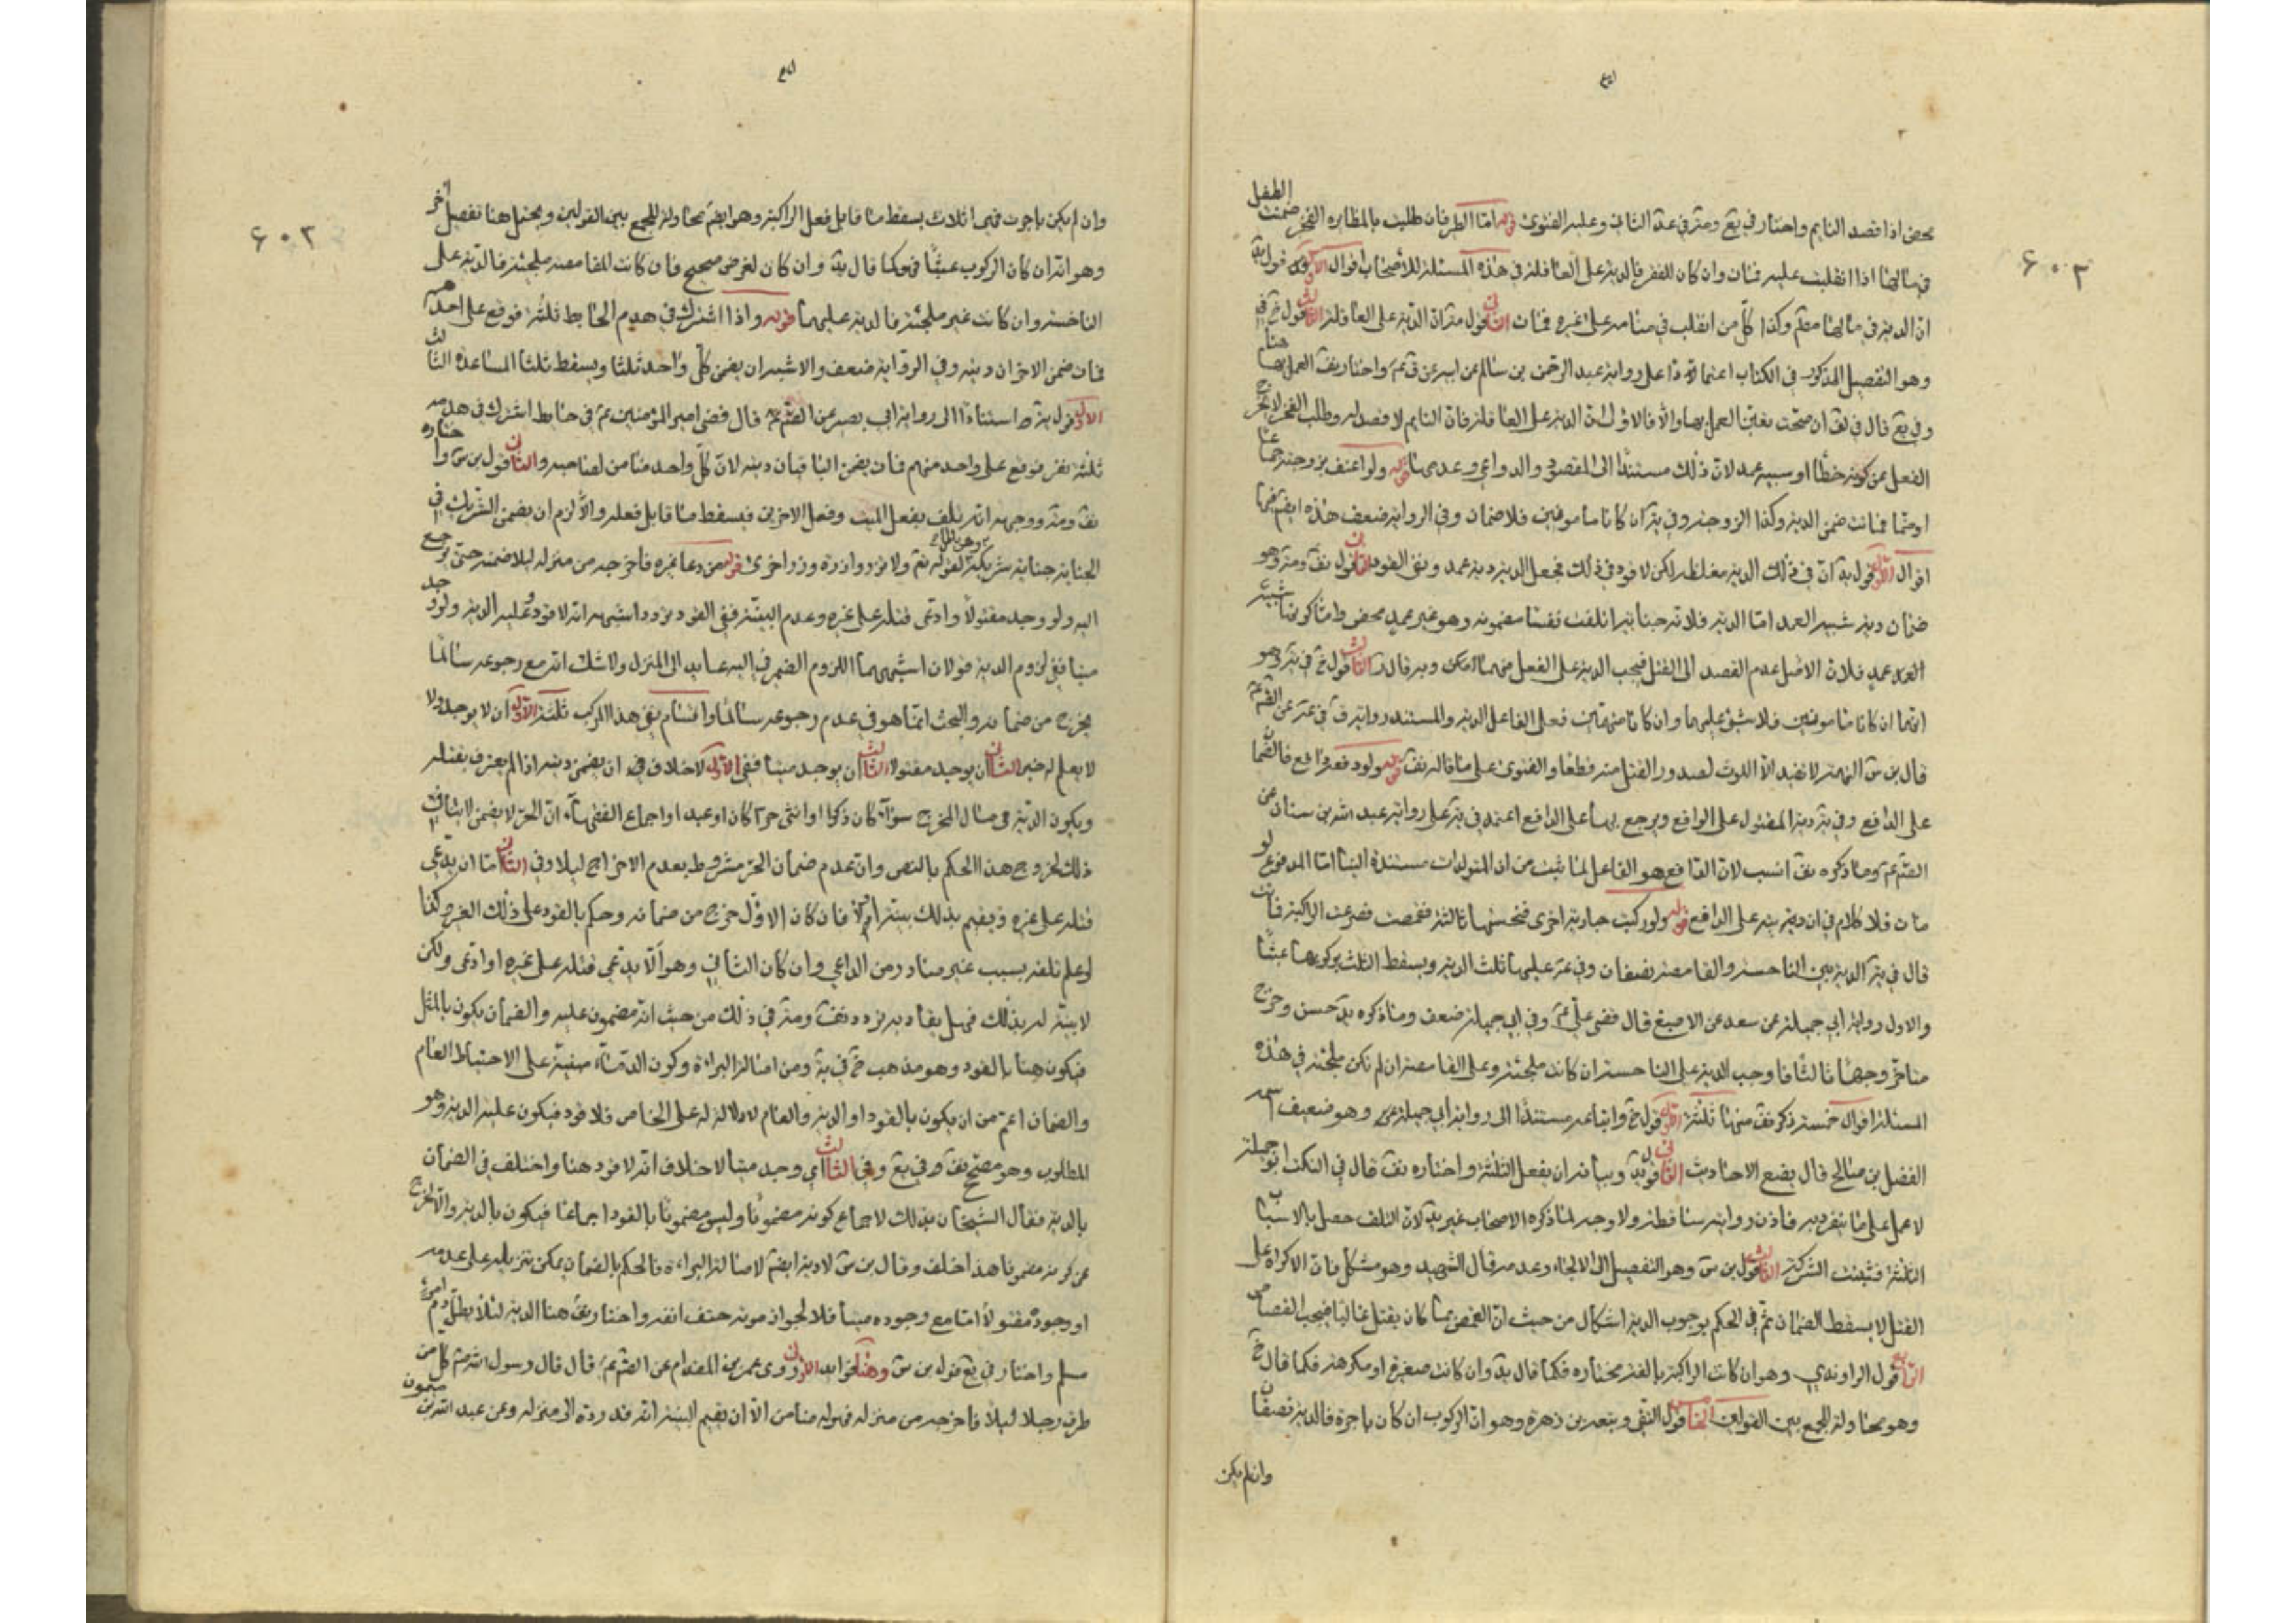 محض اذا قصد النايم واختار في يع ومد في عد الثاني وعليه الفتوى قوله اما الظئر فان طلبت بالمظايره الفخر ضمنت الطفل
في مالها اذا انقلبت عليه فمات وان كان للفقر فالدية على العاقلة في هذه المسئلة للأصحاب اقوال الاول قول يد
ان الدية في مالها معلم وكذا كل من انقلب في منامه على غيره فمات الثاني قول مد ان الدية على العاقلة الثالث قول خ في
وهو التفصيل المذكور في الكتاب اعتمادا على رواية عبد الرحمن بن سالم عن ابيه عن ق عم واختار يف العمل بها هنا
وفي يع قال في لف ان صحت تعين العمل بها والا فالاولى ان الدية على العاقلة فان النايم لا قصد له وطلب الفخر لا يخرج
الفعل عن كونه خطأ او شبيه عمد لان ذلك مستندا الى المقصود والدواعي وعدمها قوله ولو اعنف بزوجته جماعا
او ضما فماتت ضمن الدية وكذا الزوجة وفي ية ان كانا مامونين فلا ضمان وفي الرواية ضعف هذه ايضا فيها
اقوال الاول قول يد ان في ذلك الدية مغلظة لكن لا قود في ذلك فجعل الدية دية عمد ونفى القود الثاني قول يف ومد وهو
ضمان دية شبيه العمد اما الدية فلانه جنايته اتلفت نفسا مضمونة وهو غير عمد محض واما كونها شبيه
العمد عمد فلان الاصل عدم القصد الى القتل فيجب الدية على الفعل مهما امكن وبه قال الثالث قول خ في ية وهو
انهما ان كانا مامونين فلا شئ عليهما وان كانا متهمين فعلى الفاعل الدية والمستند رواية ق في عن الصم عم
قال بن س التهمة لا تفيد الا اللوث لصدور القتل منه قطعا والفتوى على ما قاله يف قوله ولو دفعه دافع فالضمان
على الدافع وفي ية دية المقتول على الواقع ويرجع بها على الدافع اعتمد في ية على رواية عبد الله بن سنان عن
الصم عم وما ذكره يف انسب لان الدافع هو الفاعل لما ثبت من ان المتولدات مستندة الينا اما المدفوع لو
مات فلا كلام في ان ديته على الدافع قوله ولو ركبت جارية اخرى فنخستها ثالثة فقمصت فصرعت الراكبة فماتت
قال في ية الدية بين الناخسة والقامصة نصفان وفي عه عليهما ثلث الدية ويسقط الثلث بركوبها عبثا
والاول رواية ابي جميلة عن سعد عن الاصبغ قال قضى علي عم وفي ابي جميلة ضعف وما ذكره يد حسن وخرج
متاخر وجها ثالثا فاوجب الدية على الناخسة ان كانت ملجئة وعلى القامصة ان لم تكن ملجئة في هذه
المسئلة اقوال خمسة ذكر يف منها ثلثة الاول قول خ واتباعه مستندا الى رواية ابي جميلة وهو ضعيف اسمه
الفضل بن صالح قال يضع الاحاديث الثاني قول يد وبيانه ان بفعل الثلثة واختاره يف قال في النكت ابو جميلة
لا عمل على ما ينفرد به فاذن روايته ساقطة ولا وجه لما ذكره الاصحاب غير يد لان التلف حصل بالاسباب
الثلثة فتثبت الشركة الثالث قول بن س وهو التفصيل الى الالجاء وعدمه قال الشهيد وهو مشكل فان الاكراه على
القتل لا يسقط الضمان ثم في الحكم بوجوب الدية اشكال من حيث ان القمص ربما كان يقتل غالبا فيجب القصاص
الرابع قول الراوندي وهو ان كانت الراكبة بالغة مختارة فكما قال يد وان كانت صغيرة او مكرهة فكما قال خ
وهو محاولة للجمع بين القولين الخامس قول التقي وتبعه بن زهرة وهو ان الركوب ان كان باجرة فالدية نصفان
وان لم يكن
وان لم يكن باجرت فهي اثلاث يسقط ما قابل فعل الراكبة وهو ايضا محاولة للجمع بين القولين ويحتمل هنا تفصيل آخر
وهو انه ان كان الركوب عبثا فهو كما قال يد وان كان لغرض صحيح فان كانت القامصة ملجئة فالدية على
الناخسة وان كانت غير ملجئة فالدية عليهما قوله واذا اشترك في هدم الحايط ثلثة فوقع على احدهم
فمات ضمن الاخران ديته وفي الرواية ضعف والاشبه ان يضمن كل واحد ثلثا ويسقط ثلثا المساعدة الثالث
الاول قول ية استنادا الى رواية ابي بصير عن الصم عم قال قضى امير المؤمنين عم في حايط اشترك في هدمه
ثلثة نفر فوقع على واحد منهم فمات يضمن الباقيان ديته لان كل واحد ضامن لصاحبه والثاني قول بن س واختاره
يف ومد ووجهه انه تلف بفعل الميت وفعل الاخرين فيسقط ما قابل فعله والا لزم ان يضمن الشريك في
الجناية جناية شريكه وهو باطل لقوله تع ولا تزر وازرة وزر اخرى قوله من دعا غيره فاخرجه من منزله ليلا ضمنه حتى يرجع
اليه ولو وجد مقتولا وادعى قتله على غيره وعدم البينة ففي القود تردد اشبهه انه لا قود وعليه الدية ولو وجد
ميتا ففي لزوم الدية قولان اشبههما اللزوم الضمير في اليه عايد الى المنزل ولا شك انه مع رجوعه سالما
يخرج من ضمانه والبحث انما هو في عدم رجوعه سالما واقسام نفي هذا المركب ثلثة الاول ان لا يوجد ولا
لا يعلم له خبر الثاني ان يوجد مقتولا الثالث ان يوجد ميتا ففي الاول لا خلاف في ان يضمن ديته اذا لم يعترف بقتله
ويكون الدية في مال المخرج سواء كان ذكرا او انثى حرا كان او عبدا واجماع الفقهاء ان الحر لا يضمن لا ينافي
ذلك لخروج هذا الحكم بالنص وان عدم ضمان الحر مشروط بعدم الاخراج ليلا وفي الثاني اما ان يدعي
قتله على غيره ويقيم بذلك بينة اولا فان كان الاول خرج من ضمانه وحكم بالقود على ذلك الغير كما
لو علم تلفه بسبب غير صادر من الداعي وان كان الثاني وهو الا يدعي قتله على غيره او ادعى ولكن
لا بينة له بذلك فهل يقاد به تردد يف ومد في ذلك من حيث انه مضمون عليه والضمان يكون بالمثل
فيكون هنا بالقود وهو مذهب خ في ية ومن اصالة البراءة وكون الدماء مبنية على الاحتياط العام
والضمان اعم من ان يكون بالقود او الدية والعام لا دلالة له على الخاص فلا قود فيكون عليه الدية وهو
المطلوب وهو مصحح يف وفي يع وفي الثالث اي وجد ميتا لا خلاف انه لا قود هنا واختلف في الضمان
بالدية فقال الشيخان بذلك لاجماع كونه مضمونا وليس مضمونا بالقود اجماعا فيكون بالدية والا لخرج
عن كونه مضمونا هذا خلف وقال بن س لا دية ايضا لاصالة البراءة فالحكم بالضمان يمكن تنزيله على عدمه
او وجوده مقتولا اما مع وجوده ميتا فلا لجواز موته حتف انفه واختار يف هنا الدية لئلا يطل دم امرئ
مسلم واختار في يع قول بن س وهنا فوايد الاولى روى عمرو بن المقدام عن الصم عم قال قال رسول الله ص كل من
طرق رجلا ليلا فاخرجه من منزله فهو له ضامن الا ان يقيم البينة انه قد رده الى منزله وعن عبد الله بن ميمون